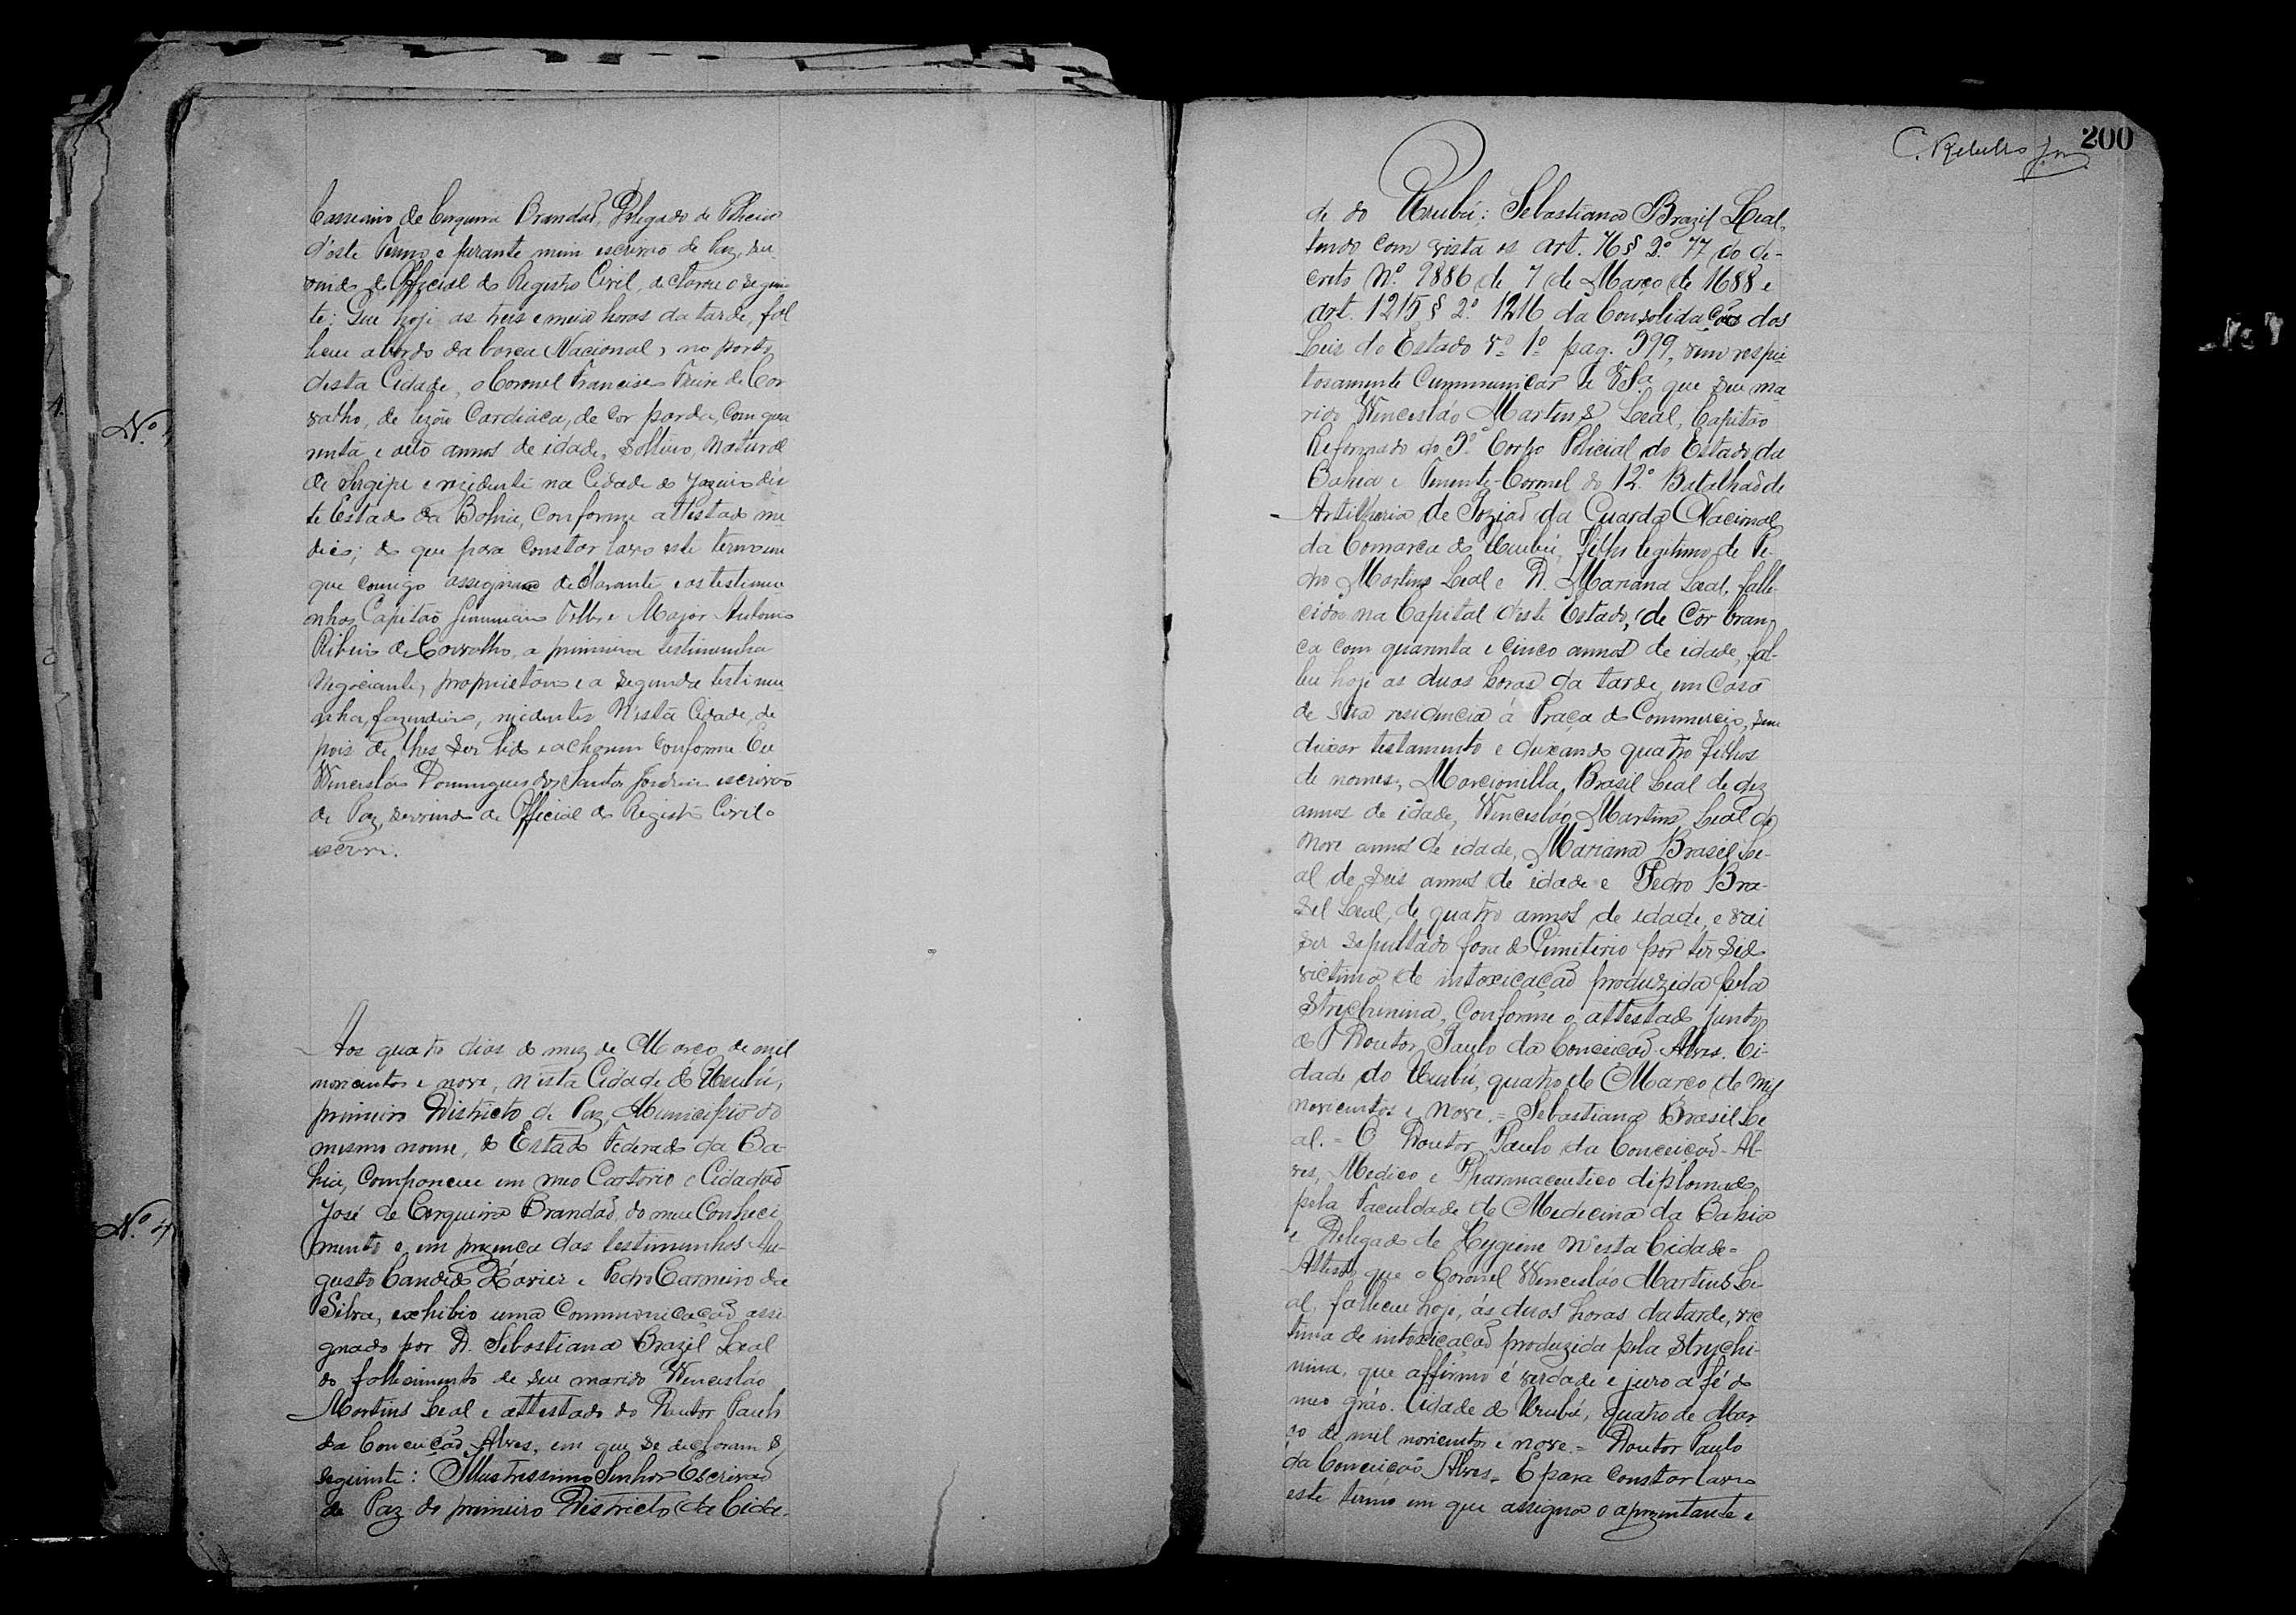 Cassiano de Cerqueira Brandaõ, Delegado de Policia
d'este Termo e perante mim escrivão de Paz, ser
vindo de Official do Registro Civil, declarou o seguin
te: Que hoje as treis e meia horas da tarde, fal
leceu abordo da barca Nacional, no porto
desta Cidade, o Coronel Francisco Freire de Car
valho, de lezão Cardiaca, de cor parda, com qua
renta e oito annos de idade, solteiro, natural
de Sergipe e residente na Cidade do Joazeiro des
te Estado da Bahia, conforme attestado me
dico; do que para constar lavro este termo em
que comigo assignam declarante e as testemu
nhas Capitão Antonio
Ribeiro de Carvalho, a primeira testimunha
Negociante, proprietario e a segunda testimu
nha, fazendeiro, residentes N'esta Cidade, de
pois de lhes ser lido e acharem conforme Eu
Wencesláo Domingues dos Santos escrivão
de Paz, servindo de Official do Registro Civil o
escrevi.
Nº
Aos quatro dias do mez de Março de mil
novicentos e nove, n'esta Cidade do Urubú,
primeiro Districto de Paz, Municipio do
mesmo nome, do Estado Federado da Ba-
hia, compareceu em meo Cartorio o Cidadaõ
José de Cerqueira Brandaõ, do meu Conheci
mento e em prezença das testimunhas Au-
gusto Candido Xavier e Pedro Carneiro da
Silva, exhibio uma Communicacaõ assi
gnada por D. Sebastiana Brazil Leal
do fallecimento de seu marido Wencesláo
Martins Leal e attestado do Doutor Paulo
da Conceiçaõ Alves, em que se declaram o
seguinte: Illustrissimo Senhor Escrivaõ
de Paz do primeiro Districto da Cida-
Nº 4
200
C. Rebello Jor
de do Urubú: Sebastiana Brazil Leal,
tendo com vista os art. 76 § 2º 77 do de-
creto Nº. 9886 de 7 de Março de 1688 e
art. 1215 § 2º 1216 da Consolidação das
Leis do Estado vº 1º pag. 399, vem respei
tosamente Cummunicar a VSª que seu ma
rido Wencesláo Martins Leal, Capitão
Reformado do 3º Corpo Policial do Estado da
Bahia e Tenente-Coronel do 12º Batalhaõ de
Artilharia de Poziaõ da Guarda Nacional
da Comarca do Urubú, filho legitimo de Pe-
dro Martins Leal e D. Mariana Leal, falle-
cidos na Capital deste Estado, de Côr bran
ca com quarenta e cinco annos de idade, fal-
leu hoje as duas horas da tarde, em Casa
de sua residencia á Praça do Commercio, sem
deixar testamento e deixando quatro filhos
de nomes, Marcionilla Brasil Leal de dez
annos de idade, Wencesláo Martins Leal de
nove annos de idade, Mariana Brasil Le-
al de seis annos de idade e Pedro Bra-
sil Leal, de quatro annos de idade, e vai
ser sepultado fora do Cimiterio por ter sido
victima de intoxicaçaõ produzida pela
Strychinina, conforme o attestado junto
do Doutor Paulo da Conceicaõ Alves. Ci-
dade do Urubú, quatro de Março de mil
novicentos e nove. = Sebastiana Brasil Le
al. = O Doutor Paulo da Conceiçaõ Al-
ves, Medico e Pharmaceutico diplomado
pela Faculdade de Medecina da Bahia
e Delegado de Hygiene N'esta Cidade =
Attesto que o Coronel Wencesláo Martins Le-
al, falleceu hoje, ás duas horas da tarde, vic
tima de intoxicaçaõ produzida pela Strychi-
nina, que affirmo é verdade e juro a fé do
meo gráo. Cidade do Urubú, quatro de Mar
ço de mil novicentos e nove. = Doutor Paulo
da Conceiçaõ Alves = E para constar lavro
este termo em que assigna o aprezentante e